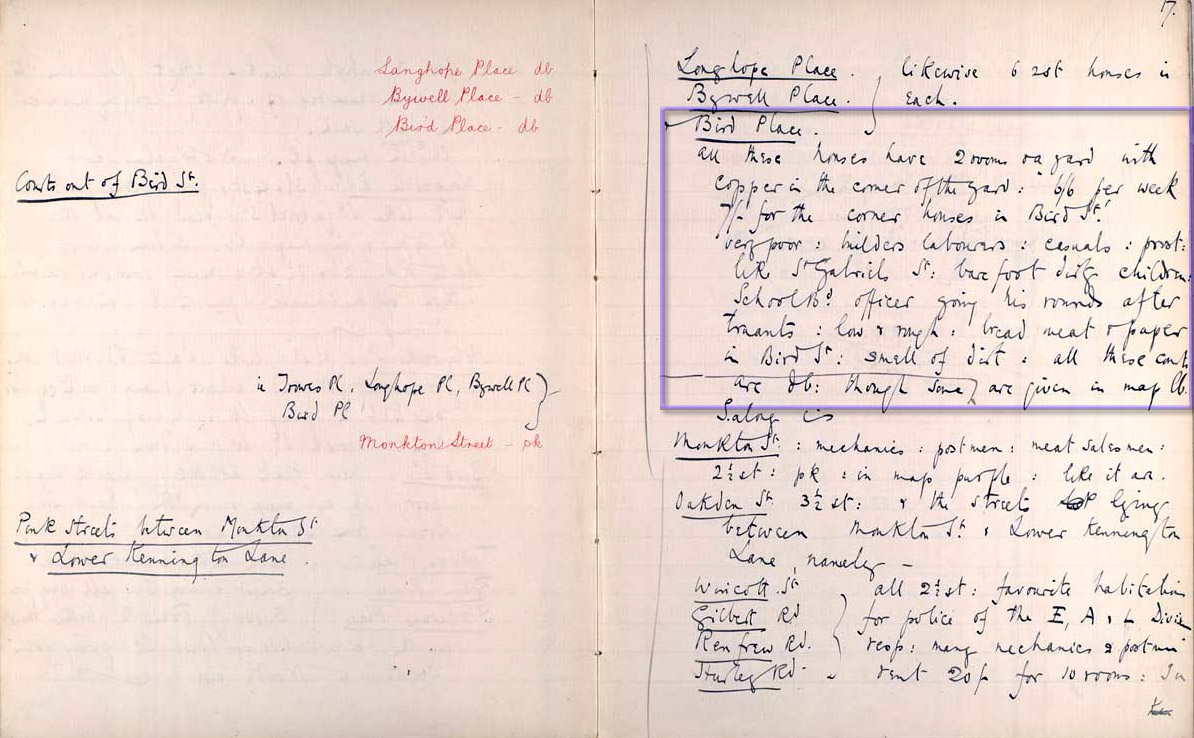 Langhope Place db
Bywell Place - db
Bird Place - db
Courts out of Bird St.
in Trowes Pl, Longhope Pl, Bywell Pl
Bird Pl
Monkton Street - pk
Pink streets between Monkton St
& Lower Kennington Lane.
17.
Longhope Place. likewise 6 2st houses in
Bywell Place. Each.
Bird Place.
all these houses have 2 rooms & a yard with
copper in the corner of the yard: 6/6 per week
7/- for the corner houses in Bird St.
very poor: builders labourers: casuals: prost:
like St Gabriels St: barefoot dirty children:
School Bd. officer going his rounds after
truants: low & rough: bread meat & paper
in Bird St: smell of dirt: all these courts
are db: though some are given in map lb.
S. along
Monkton St: mechanics: postmen: meat salesmen:
2½ st: pk: in map purple: like it are.
Oakden St. 3½ st: & the streets lying
between Monkton St. & Lower Kennington
Lane, namely -
Wincott St all 2½ st: favourite habitation
Gilbert Rd for police of the E, A & L Divisi
Renfrew Rd. resp: many mechanics & postmen
Hurley Rd - rent 20/- for 10 rooms: In